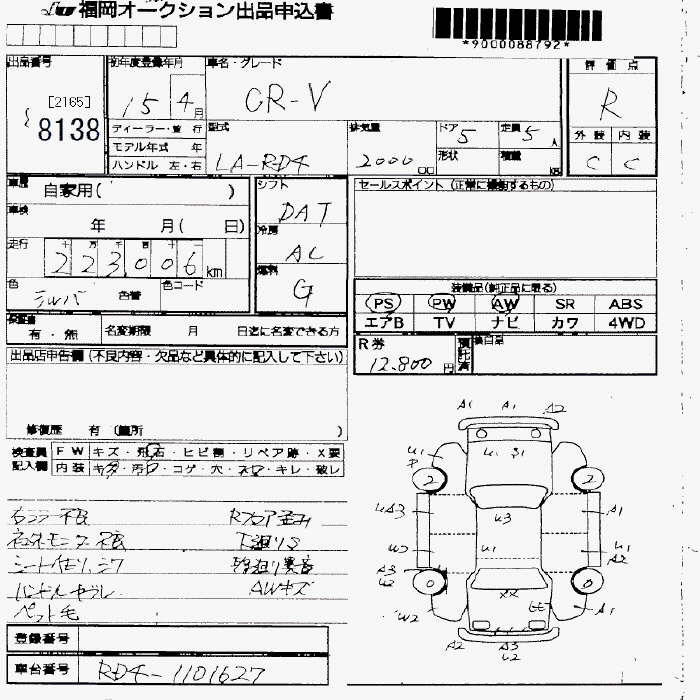 福岡オークション出品申込書
*9000088792*
出品番号
[2165]
8138
初年度登録年月
15 4月
車名・グレード
CR-V
評価点
R
外装 内装
C C
ディーラー・並行
モデル年式 年
ハンドル 左・右
型式
LA-RD4
排気量
2000 cc
ドア 5
形状
定員 5人
積量 kg
車歴 自家用( )
車検 年 月( 日)
走行 十 万 千 百 十 一
223,006 km
色 シルバ 色替
色コード
シフト
DAT
冷房
AC
燃料
G
セールスポイント (正常に機能するもの)
装備品(純正品に限る)
PS PW AW SR ABS
エアB TV ナビ カワ 4WD
有・無
名変期限 月 日迄に名変できる方
R券
12,800円
預託済
出品店申告欄 (不良内容・欠品など具体的に記入して下さい)
修復歴 有 (箇所 )
検査員記入欄
FW キズ・飛石・ヒビ割・リペア跡・X要
内装 キズ・汚レ・コゲ・穴・スレ・キレ・破レ
Rフロア歪み
下廻りS
AWキズ
ペット毛
A1 A1 A2
U1 P
U1
2 2
UA3
U3
A1
U2
U1
U1 A2
A3 U2
0 0
XX
W2
A1
A2 A3 U2
登録番号
車台番号
RD4-1101627